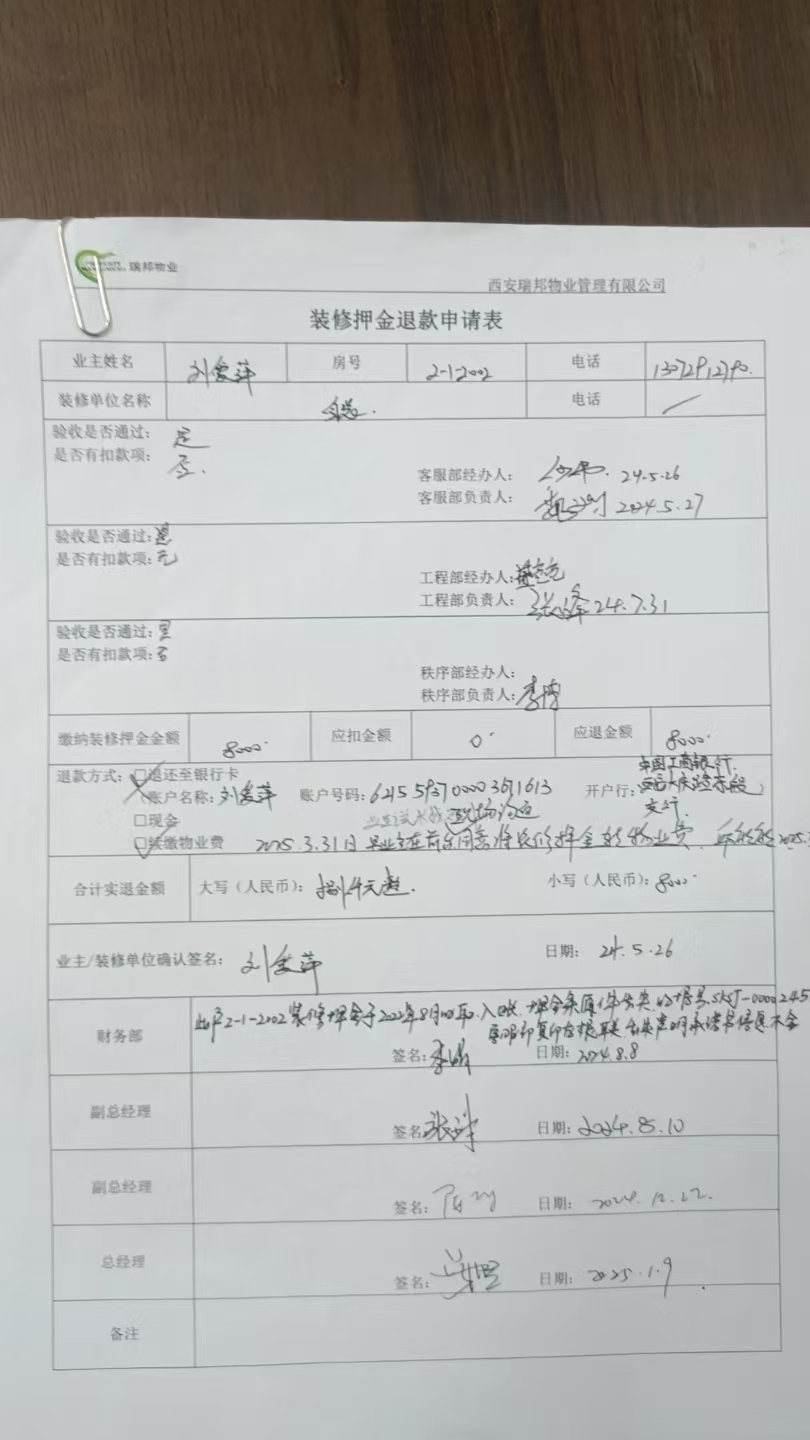 瑞邦物业
西安瑞邦物业管理有限公司
装修押金退款申请表
业主姓名 刘爱萍 房号 2-1-2002 电话
装修单位名称 电话
验收是否通过: 是
是否有扣款项: 否.
客服部经办人: 24.5.26
客服部负责人: 2024.5.27
验收是否通过: 是
是否有扣款项: 无
工程部经办人:
工程部负责人: 24.7.31
验收是否通过: 是
是否有扣款项: 否
秩序部经办人:
秩序部负责人: 李
缴纳装修押金金额 8000. 应扣金额 0. 应退金额 8000.
退款方式: □退还至银行卡 中国工商银行.
账户名称: 刘爱萍 账户号码: 6215 5937 0000 3671613 开户行: 支行.
□现金
□续缴物业费 2025.3.31日 业主在前台同意将装修押金转物业费.
合计实退金额 大写(人民币): 捌仟元整. 小写(人民币): 8000.
业主/装修单位确认签名: 刘爱萍 日期: 24.5.26
财务部 此户2-1-2002装修押金于2022年8月 押金条原件丢失.
签名: 李 日期: 2024.8.8
副总经理 签名: 张 日期: 2024.8.10
副总经理 签名: 日期: 2024.12.22.
总经理 签名: 日期: 2025.1.9
备注